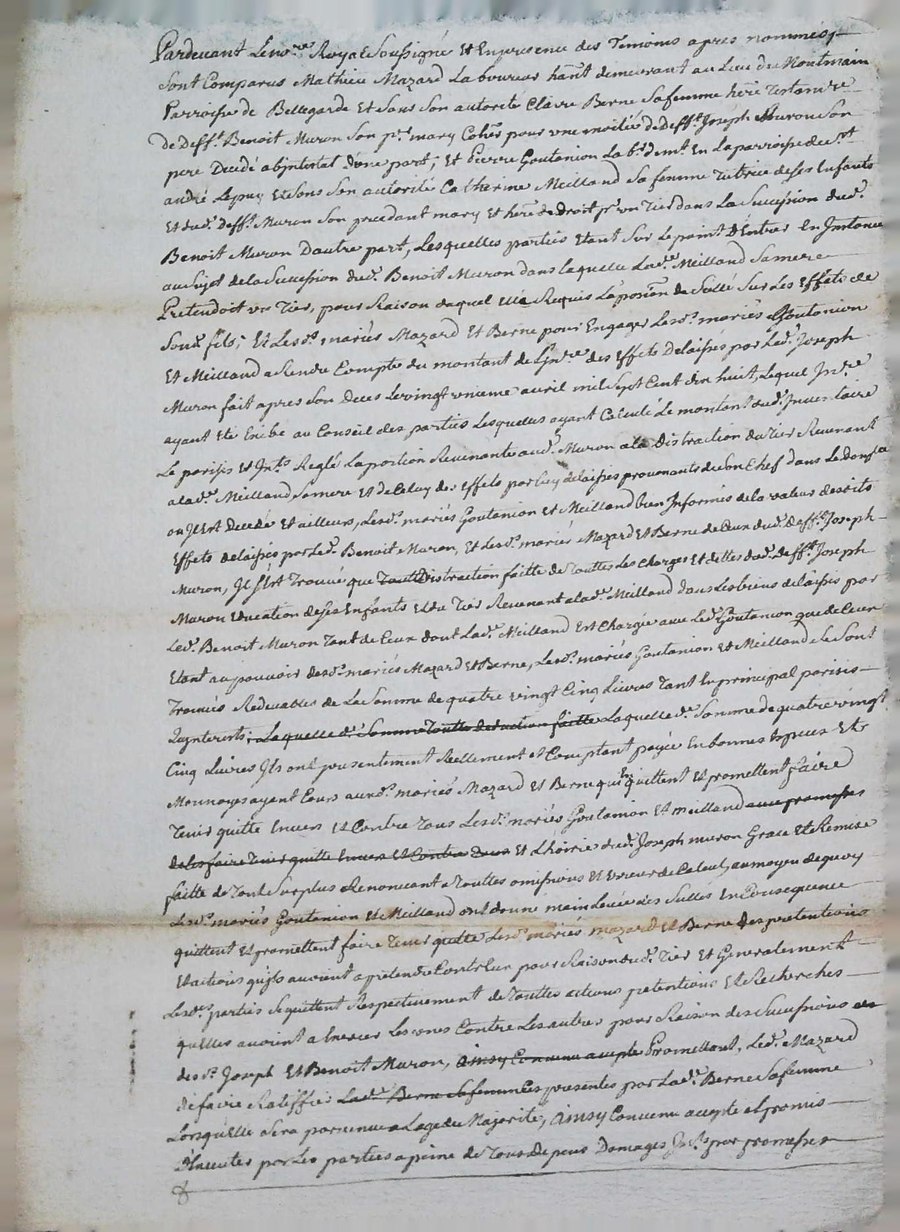 Pardevant Le no.re Royal Soussigné Et En presence des Temoins apres nommés,
sont Comparus Mathieu Mazard Laboureur ha.nt demeurant au Lieu du Montmain
Parroisse de Bellegarde Et Sous Son autorité Claire Berne Sa femme here Testam.re
de deff.t Benoit Muron Son p.er mary Coher. pour une moitié de deff.t Joseph Muron Son
pere Decedé abjntestat d'une part; et Pierre Goutanion Lab.r dem.t En La parroisse de S.t
andré Lepuy Et Sous Son autorité Catherine Meilland Sa femme Tutrice de Ses Enfants
Et dud. deff.t Muron Son precedant mary et here de droit p.r un Tier dans La Succession dud.
Benoit Muron D'autre part, Lesquelles parties Etant Sur Le point D'Entrer En Jnstance
au Sujet de la Succession dud. Benoit Muron dans laquelle Lad. Meilland Sa mere
Pretendoit un Tier, pour Raison duquel Elle Requis L'aposi.on de Scellé Sur Les Effets de
Sond. fils; Et Lesd. mariés Mazard Et Berne pour Engager Lesd. mariés Goutanion
Et Meilland a Rendre Compte du montant de L'jnv.re des Effets Delaissés par Led. Joseph
Muron fait apres Son Deces Le vingt unieme avril mil Sept Cent dix huit, Lequel Jnv.re
ayant Eté Exibé au Conseil des parties Lesquelles ayant Calculé Le montant dud. Jnventaire
Le parisis et Jnt.s Reglé La portion Revenante aud. Muron a la distraction du Tier Revenant
a lad. Meilland Sa mere Et de Celuy des Effets par luy delaissés provenants de Son Chef dans Le
ou Jl Est Decedé Et ailleurs, Lesd. mariés Goutanion Et Meilland bien Jnformés de la valeur desdits
Effets delaissés par Led. Benoit Muron, Et Lesd. mariés Mazard Et Berne de Ceux dud. deff.t Joseph
Muron, Jl S'Est Trouvé que Toutte Distraction faitte de Touttes Les Charges Et dettes dud. deff.t Joseph
Muron Education de Ses Enfants Et du Tier Revenant a lad. Meilland dans Les biens delaissés par
Led. Benoit Muron Tant de Ceux dont Lad. Meilland Est Chargée avec Led. Goutanion que de Ceux
Etant au pouvoir desd. mariés Mazard Et Berne, Lesd. mariés Goutanion Et Meilland Se Sont
Trouvés Redevables de La Somme de quatre vingt Cinq Livres Tant En principal parisis
Qu'jnterêts; Laquelle d. Somme Toutte deduction faitte Laquelle d. Somme de quatre vingt
Cinq Livres Jls ont presentement Reellement et Comptant payée En bonnes Especes Et
Monnoyes ayant Cours auxd. mariés Mazard Et Berne qui En quittent Et promettent faire
Tenir quitte Envers Et Contre Tous Lesd. mariés Goutanion Et Meilland avec promesses
de les faire Tenir quitte Envers Et Contre Tous Et L'hoirie dud. Joseph muron Grace Et Remise
faitte de Tout Surplus Renoncant a Touttes omissions Et Erreur de Calcul, au moyen de quoy
Lesd. mariés Goutanion Et Meilland ont donné main Levée des Scellés En Consequence
quittent Et promettent faire Tenir quitte Lesd. mariés mazard Et Berne des pretentions
Et actions qu'jls auroient a pretendre Contr'Eux pour Raison dud. Tier Et Generalement
Lesd. parties Se quittent Respectivement de Touttes actions pretentions Et Recherches
qu'elles auroient a Exercer Les unes Contre Les autres pour Raison des Successions
desd. Joseph Et Benoit Muron, ainsy Convenu accepté Promettant, Led. Mazard
de faire Ratiffier Lad. Berne Sa femme Les presentes par Lad. Berne Sa femme
Lorsqu'elle Sera parvenue a Lage de Majorité, ainsy Convenu accepté Et promis
D'Executer par Les parties a peine de Tous Depens Domages Jnt.s par promesses